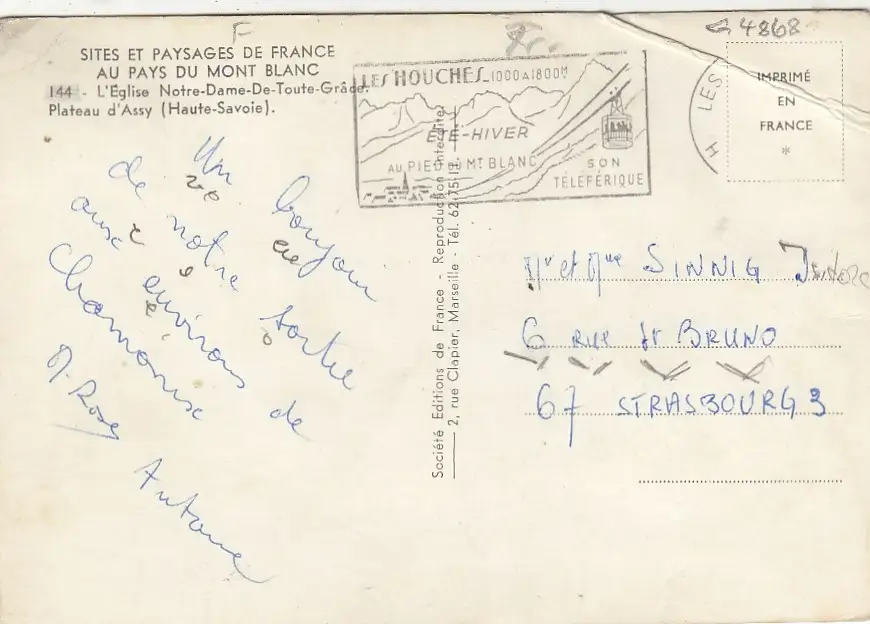 F
Fr.
4868
SITES ET PAYSAGES DE FRANCE
AU PAYS DU MONT BLANC
144 - L'Église Notre-Dame-De-Toute-Grâce.
Plateau d'Assy (Haute-Savoie).
LES HOUCHES 1000 A 1800 M
ÉTÉ-HIVER
AU PIED DU MT BLANC
SON
TÉLÉFÉRIQUE
H LES
IMPRIMÉ
EN
FRANCE
*
Un bonjour
de notre sortie
aux environs de
Chamonix
M. Rose Antoine
Société Editions de France - Reproduction interdite
2, rue Clapier, Marseille - Tél. 62-75-15
Mr et Mme SINNIG
6 RUE St BRUNO
67 STRASBOURG 3